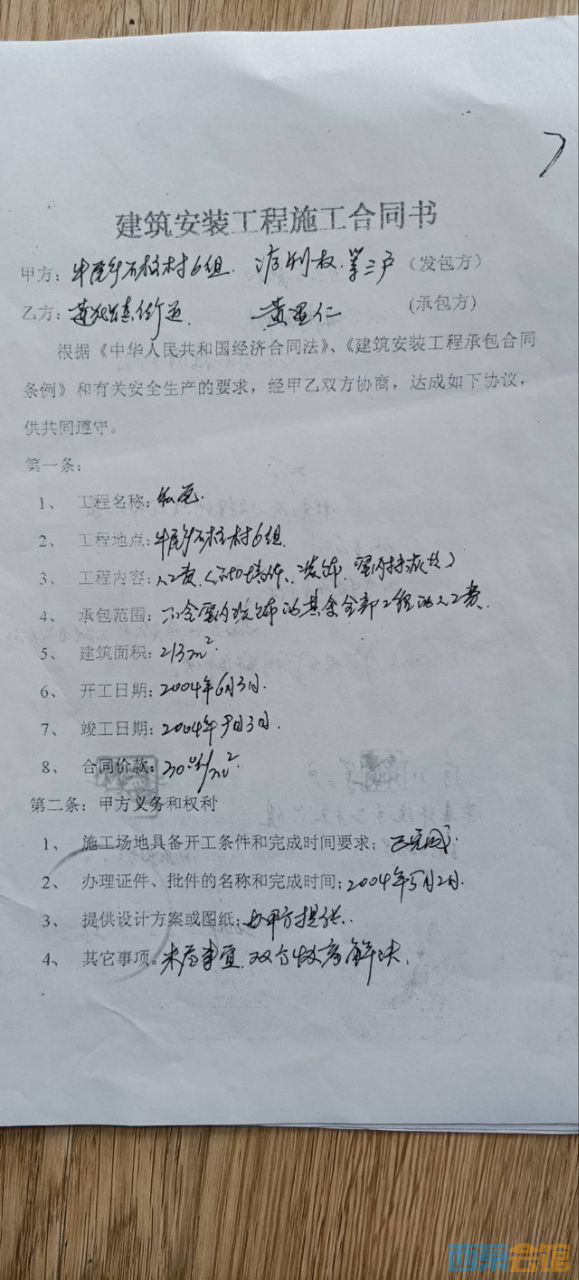 建筑安装工程施工合同书
甲方：牛尾乡石柱村6组. 权.第三户（发包方）
乙方： 黄显仁 (承包方)
根据《中华人民共和国经济合同法》、《建筑安装工程承包合同
条例》和有关安全生产的要求，经甲乙双方协商，达成如下协议，
供共同遵守。
第一条：
1、 工程名称：私宅.
2、 工程地点：牛尾乡石柱村6组.
3、 工程内容：人工费
4、 承包范围：不含室内装饰的其余全部工程的人工费.
5、 建筑面积：213m².
6、 开工日期：2004年6月3日.
7、 竣工日期：2004年9月3日.
8、 合同价款：/m²
第二条：甲方义务和权利
1、 施工场地具备开工条件和完成时间要求；已完成.
2、 办理证件、批件的名称和完成时间；2004年5月2日.
3、 提供设计方案或图纸；由甲方提供.
4、 其它事项。未尽事宜.双方协商解决.
西祠会馆